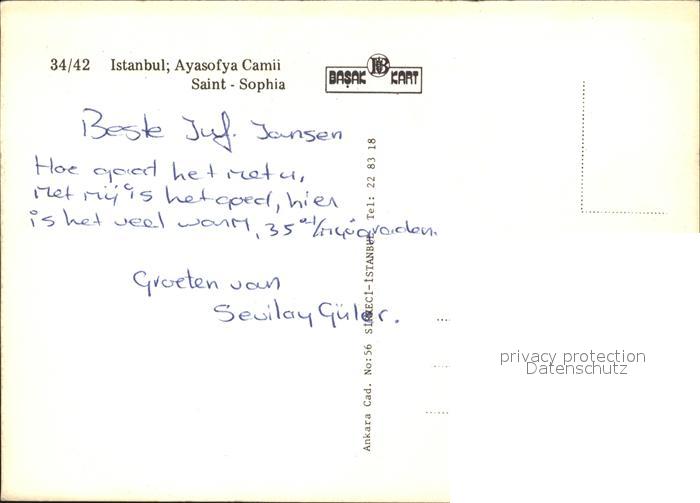 34/42 Istanbul; Ayasofya Camii
Saint - Sophia
BAŞAK KART
Beste Juf. Jansen
Hoe gaad het met u,
Met mij is het goed, hier
is het veel warm, 35 graden.
Groeten van
Sevilay Güler.
Ankara Cad. No:56 SİRKECİ-İSTANBUL Tel: 22 83 18
privacy protection
Datenschutz